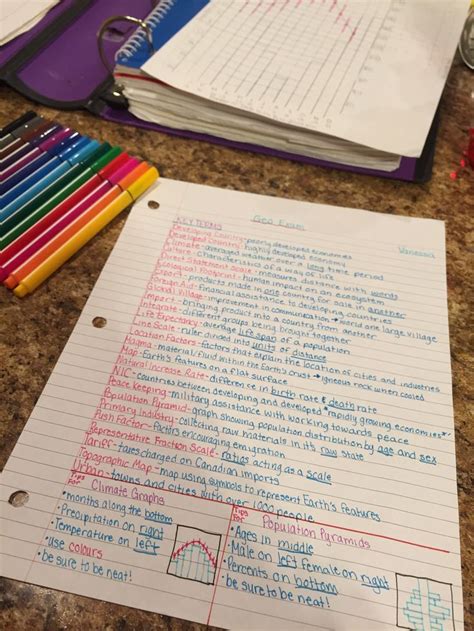 Geo Exam
Vanessa
KEY TERMS
Developing Country - poorly developed economies
Developed Country - highly developed economy
Climate - averaged weather over a long time period
Culture - characteristics of a way of life
Direct Statement Scale - measures distance with words
Ecological Footprint - human impact on an ecosystem
Export - products made in one country for sale in another
Foreign Aid - financial assistance to developing countries
Global Village - improvement in communication → world one large village
Import - bringing product into a country from another
Integrate - different groups being brought together
Life Expectancy - average life span of a population
Line Scale - ruler divided into units of distance
Location Factors - factors that explain the location of cities and industries
Magma - material/fluid within the Earth's crust → igneous rock when cooled
Map - Earth's features on a flat surface
Natural Increase Rate - difference in birth rate & death rate
NIC - countries between developing and developed "rapidly growing economies"
Peace Keeping - military assistance with working towards peace
Population Pyramid - graph showing population distribution by age and sex
Primary Industry - collecting raw materials in its raw state
Push Factor - factors encouraging emigration
Representative Fraction Scale - ratios acting as a scale
Tariff - taxes charged on Canadian imports
Topographic Map - map using symbols to represent Earth's features
Urban - towns and cities with over 1000 people
Tips for Climate Graphs
• months along the bottom
• Precipitation on right
• Temperature on left
• use colours
• be sure to be neat!
Tips for Population Pyramids
• Ages in middle
• Male on left female on right
• Percents on bottom
• be sure to be neat!